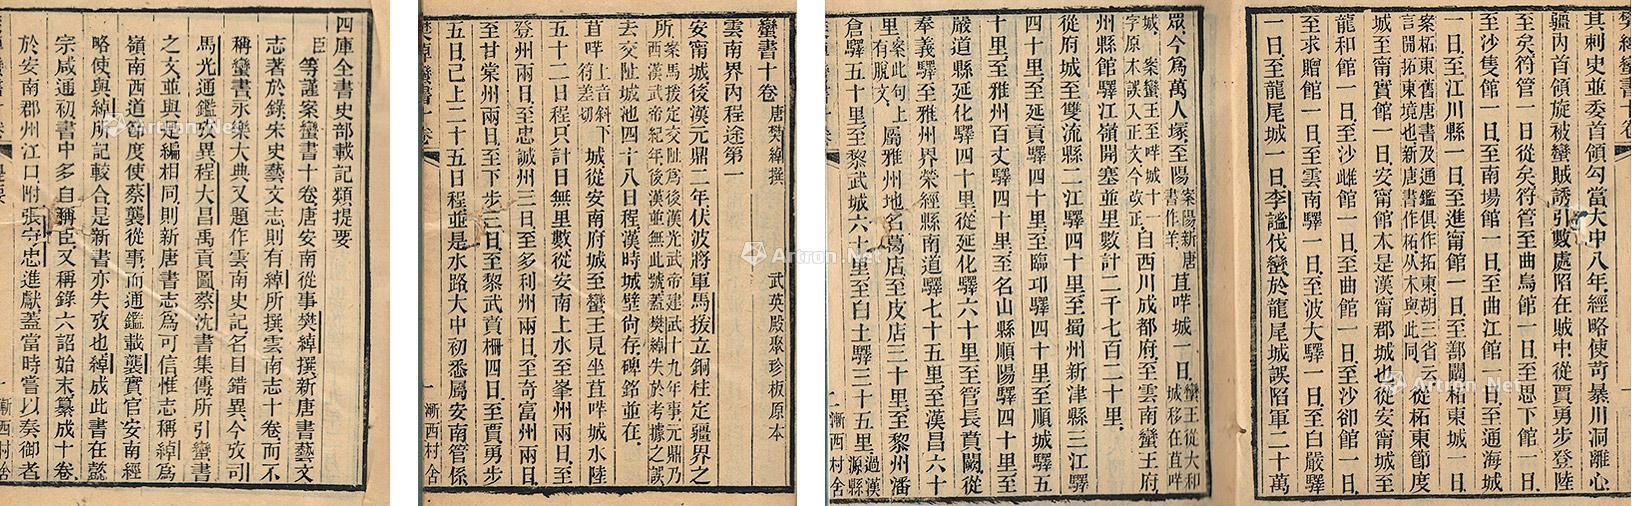 四庫全書史部載記類提要
臣等謹案蠻書十卷唐安南從事樊綽撰新唐書藝文
志著於錄宋史藝文志則有綽所撰雲南志十卷而不
稱蠻書永樂大典又題作雲南史記名目錯異今攷司
馬光通鑑攷異程大昌禹貢圖蔡沈書集傳所引蠻書
之文並與是編相同則新唐書志爲可信惟志稱綽爲
嶺南西道節度使蔡襲從事而通鑑載襲實官安南經
略使與綽所記較合是新書亦失攷也綽成此書在懿
宗咸通初書中多自稱臣又稱錄六詔始末纂成十卷
於安南郡州江口附張守忠進獻蓋當時嘗以奏御者
一 漸西村舍
蠻書十卷 唐樊綽撰 武英殿聚珍板原本
雲南界內程途第一
安甯城後漢元鼎二年伏波將軍馬援立銅柱定疆界之
所案馬援定交阯爲後漢光武帝建武十九年事元鼎乃
西漢武帝紀年後漢並無此號蓋樊綽失於考據之誤
去交阯城池四十八日程漢時城壁尙存碑銘並在
苴咩上音斜下符差切城從安南府城至蠻王見坐苴咩城水陸
五十二日程只計日無里數從安南上水至峯州兩日至
登州兩日至忠誠州三日至多利州兩日至奇富州兩日
至甘棠州兩日至下步三日至黎武賁柵四日至賈勇步
五日已上二十五日程並是水路大中初悉屬安南管係
一 漸西村舍
其刺史並委首領勾當大中八年經略使苛暴川洞離心
疆內首領旋被蠻賊誘引數處陷在賊中從賈勇步登陸
至矣符管一日從矣符管至曲烏館一日至思下館一日
至沙隻館一日至南場館一日至曲江館一日至通海城
一日至江川縣一日至進甯館一日至鄯闡柘東城一日
案柘東舊唐書及通鑑俱作拓東胡三省云
言開拓東境也新唐書作柘从木與此同
從柘東節度
城至安甯館一日安甯館本是漢甯郡城也從安甯城至
龍和館一日至沙雌館一日至曲館一日至沙卻館一日
至求贈館一日至雲南驛一日至波大驛一日至白嚴驛
一日至龍尾城一日李謐伐蠻於龍尾城誤陷軍二十萬
眾今爲萬人塚至陽案陽新唐書作羊苴咩城一日蠻王從大和城移在苴咩
城案蠻王至咩城十一字原本誤入正文今改正自西川成都府至雲南蠻王府
州縣館驛江嶺開塞並里數計二千七百二十里
從府城至雙流縣二江驛四十里至蜀州新津縣三江驛
四十里至延貢驛四十里至臨邛驛四十里至順城驛五
十里至雅州百丈驛四十里至名山縣順陽驛四十里至
嚴道縣延化驛四十里從延化驛六十里至管長賁關從
奉義驛至雅州界榮經縣南道驛七十五里至漢昌六十
里案此句上有脫文屬雅州地名葛店至皮店三十里至黎州潘
倉驛五十里至黎武城六十里至白土驛三十五里過漢源縣
漸西村舍
Artron.Net
Artron.Net
Artron.Net
Artron.Net